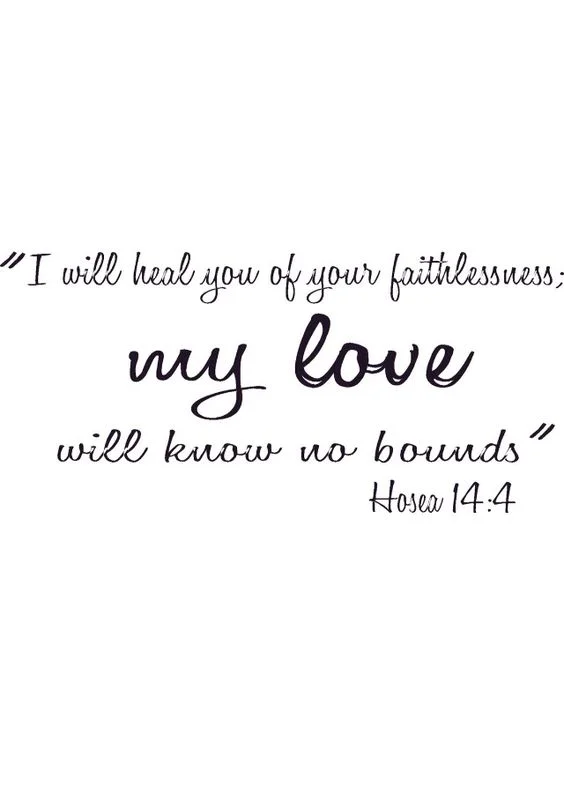 "I will heal you of your faithlessness;
my love
will know no bounds"
Hosea 14:4